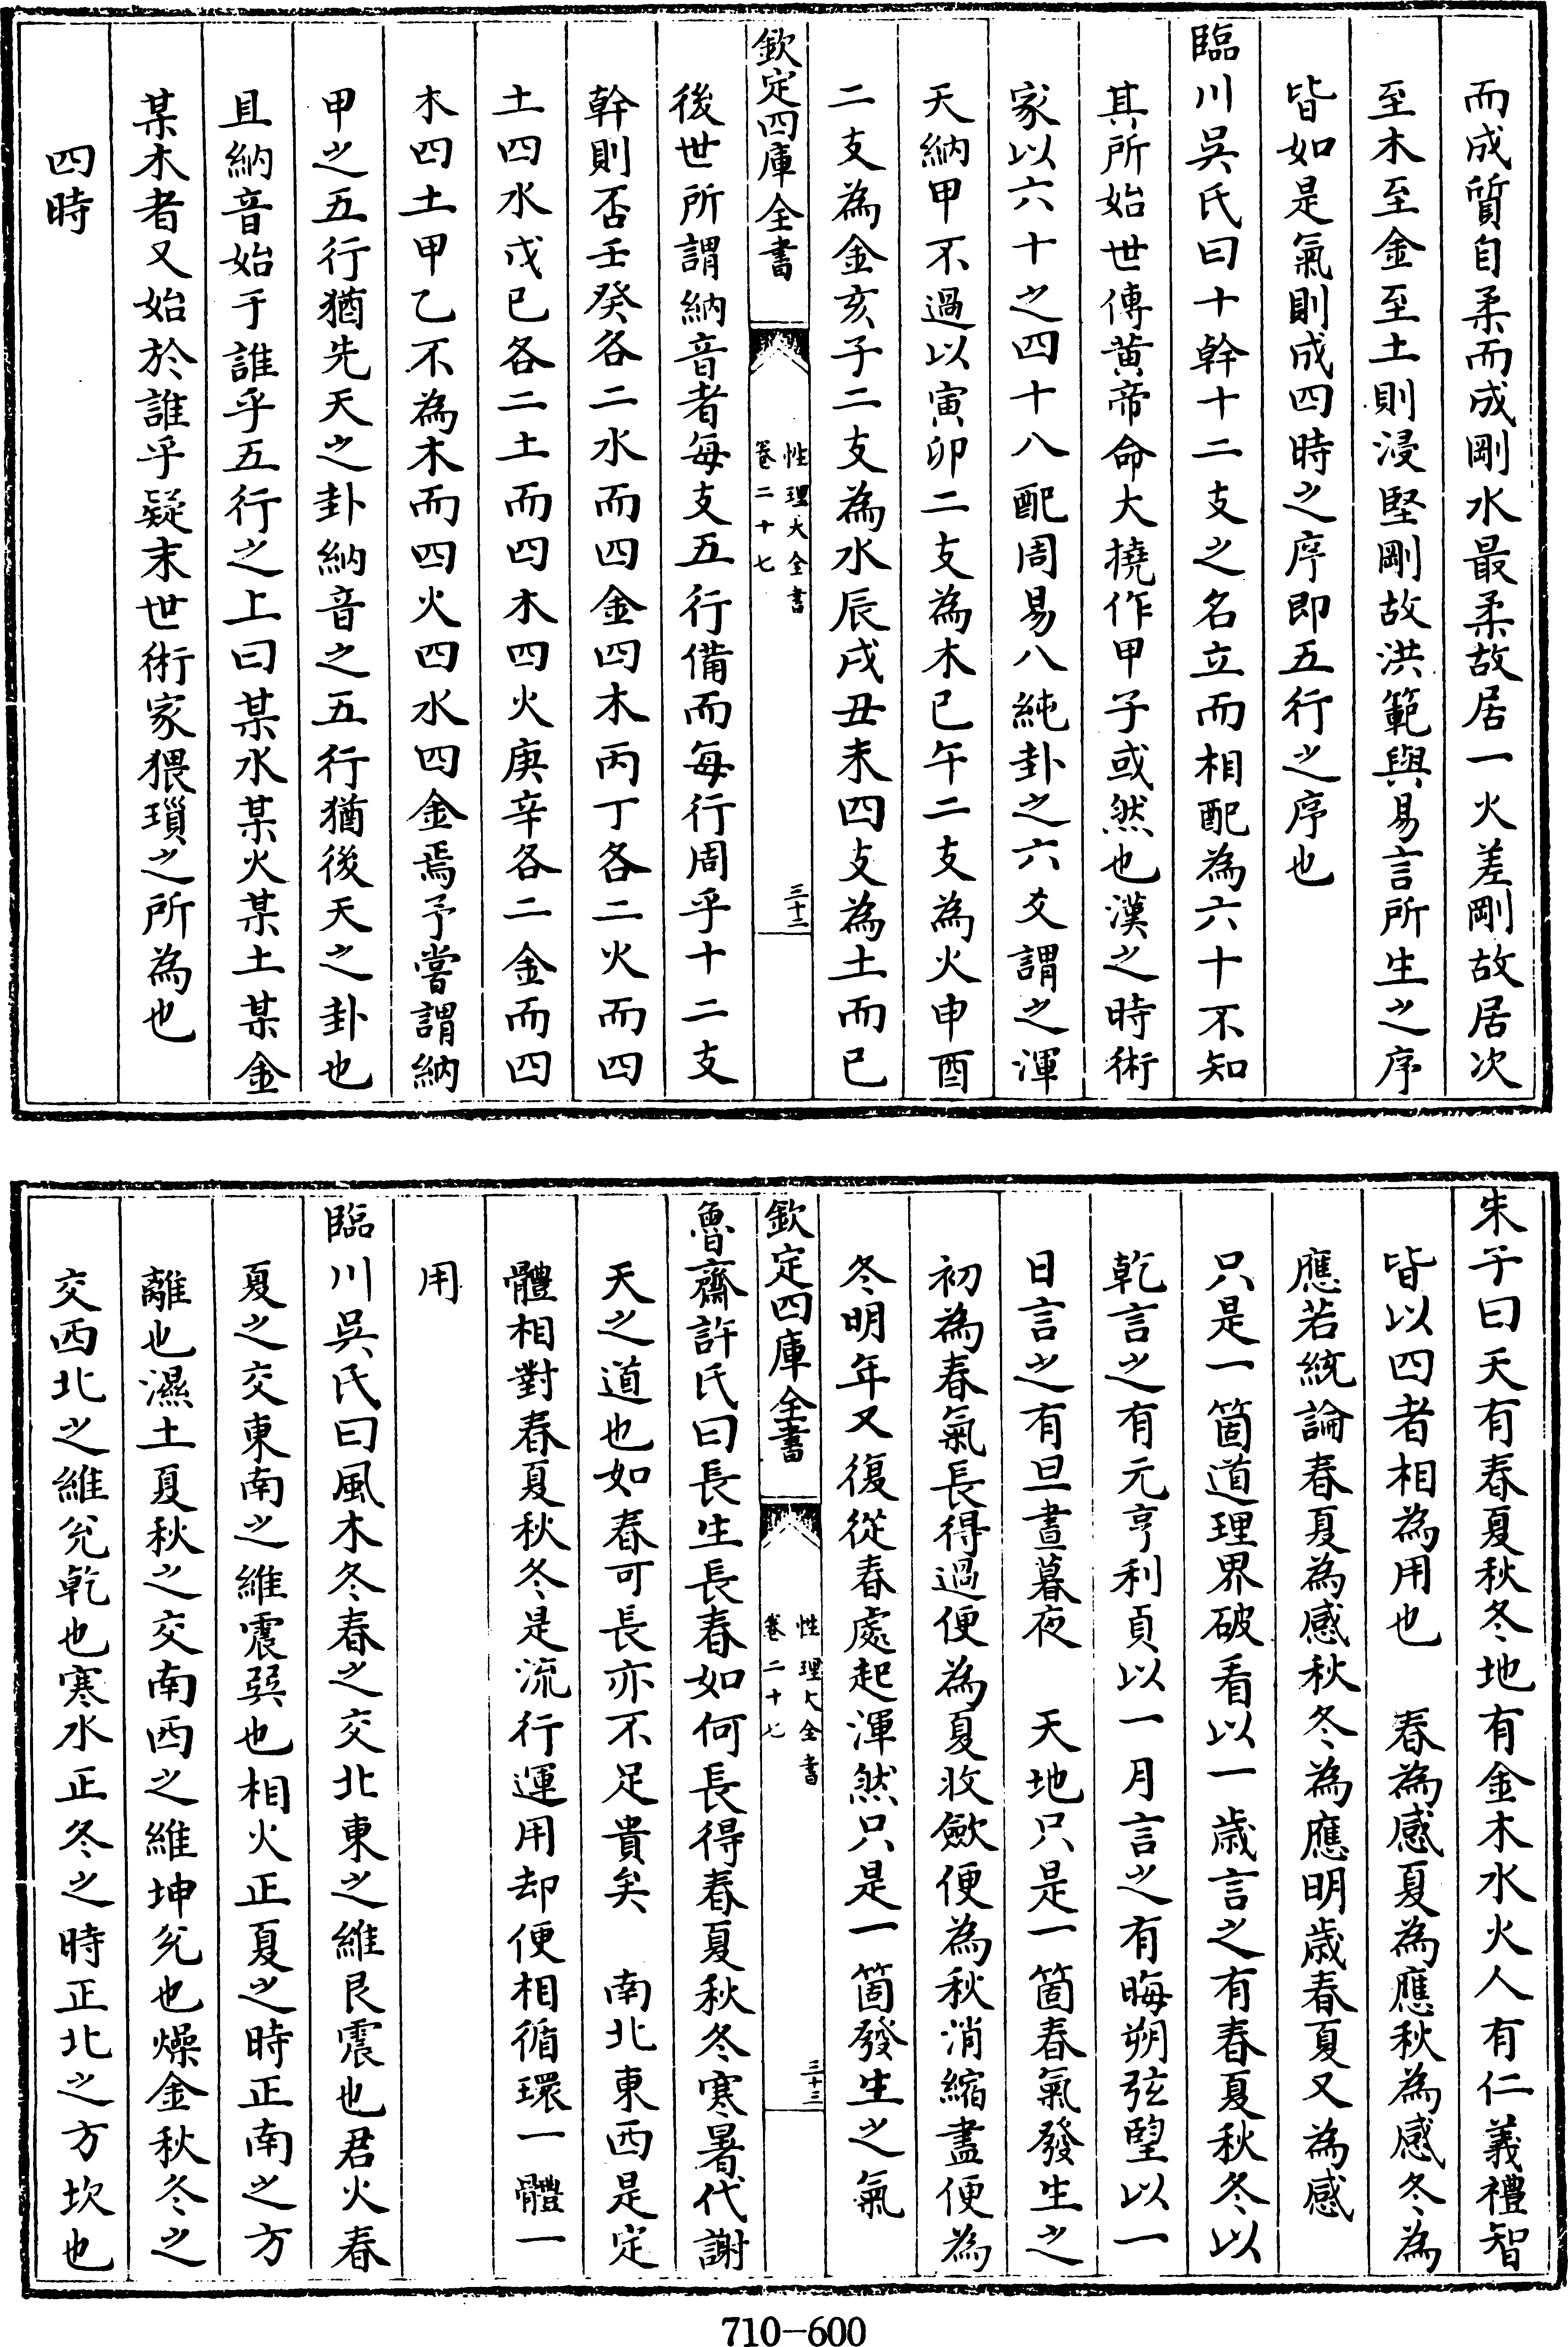 而成質自柔而成剛水最柔故居一火差剛故居次
至木至金至土則浸堅剛故洪範與易言所生之序
皆如是氣則成四時之序即五行之序也
臨川吳氏曰十幹十二支之名立而相配為六十不知
其所始世傳黄帝命大撓作甲子或然也漢之時術
家以六十之四十八配周易八純卦之六爻謂之渾
天納甲不過以寅卯二支為木巳午二支為火申酉
二支為金亥子二支為水辰戌丑未四支為土而已
欽定四庫全書
性理大全書
卷二十七
三十二
後世所謂納音者每支五行備而每行周乎十二支
幹則否壬癸各二水而四金四木丙丁各二火而四
土四水戊己各二土而四木四火庚辛各二金而四
木四土甲乙不為木而四火四水四金焉予嘗謂納
甲之五行猶先天之卦納音之五行猶後天之卦也
且納音始于誰乎五行之上曰某水某火某土某金
某木者又始於誰乎疑末世術家猥瑣之所為也
四時
朱子曰天有春夏秋冬地有金木水火人有仁義禮智
皆以四者相為用也 春為感夏為應秋為感冬為
應若統論春夏為感秋冬為應明歲春夏又為感
只是一箇道理界破看以一歲言之有春夏秋冬以
乾言之有元亨利貞以一月言之有晦朔弦望以一
日言之有旦晝暮夜 天地只是一箇春氣發生之
初為春氣長得過便為夏收斂便為秋消縮盡便為
冬明年又復從春處起渾然只是一箇發生之氣
欽定四庫全書
性理大全書
卷二十七
三十三
魯齋許氏曰長生長春如何長得春夏秋冬寒暑代謝
天之道也如春可長亦不足貴矣 南北東西是定
體相對春夏秋冬是流行運用却便相循環一體一
用
臨川吳氏曰風木冬春之交北東之維艮震也君火春
夏之交東南之維震巽也相火正夏之時正南之方
離也濕土夏秋之交南西之維坤兌也燥金秋冬之
交西北之維兌乾也寒水正冬之時正北之方坎也
710-600